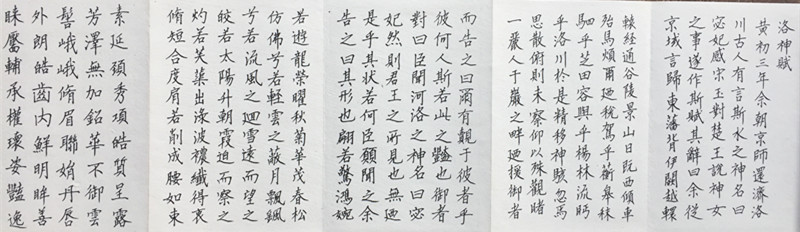 洛神賦
黄初三年余朝京師還濟洛
川古人有言斯水之神名曰
宓妃感宋玉對楚王說神女
之事遂作斯賦其辭曰余從
京域言歸東藩背伊闕越轘
轅經通谷陵景山日既西傾車
殆馬煩爾迺稅駕乎蘅皋秣
駟乎芝田容與乎楊林流眄
乎洛川於是精移神駭忽焉
思散俯則未察仰以殊觀睹
一麗人于巖之畔迺援御者
而告之曰爾有覿于彼者乎
彼何人斯若此之豔也御者
對曰臣聞河洛之神名曰宓
妃然則君王之所見也無迺
是乎其狀若何臣願聞之余
告之曰其形也翩若驚鴻婉
若遊龍榮曜秋菊華茂春松
仿佛兮若輕雲之蔽月飄飄
兮若流風之迴雪遠而望之
皎若太陽升朝霞迫而察之
灼若芙蕖出淥波襛纖得衷
脩短合度肩若削成腰如束
素延頸秀項皓質呈露
芳澤無加鉛華不御雲
髻峨峨脩眉聯娟丹唇
外朗皓齒內鮮明眸善
睞靨輔承權瓌姿豔逸